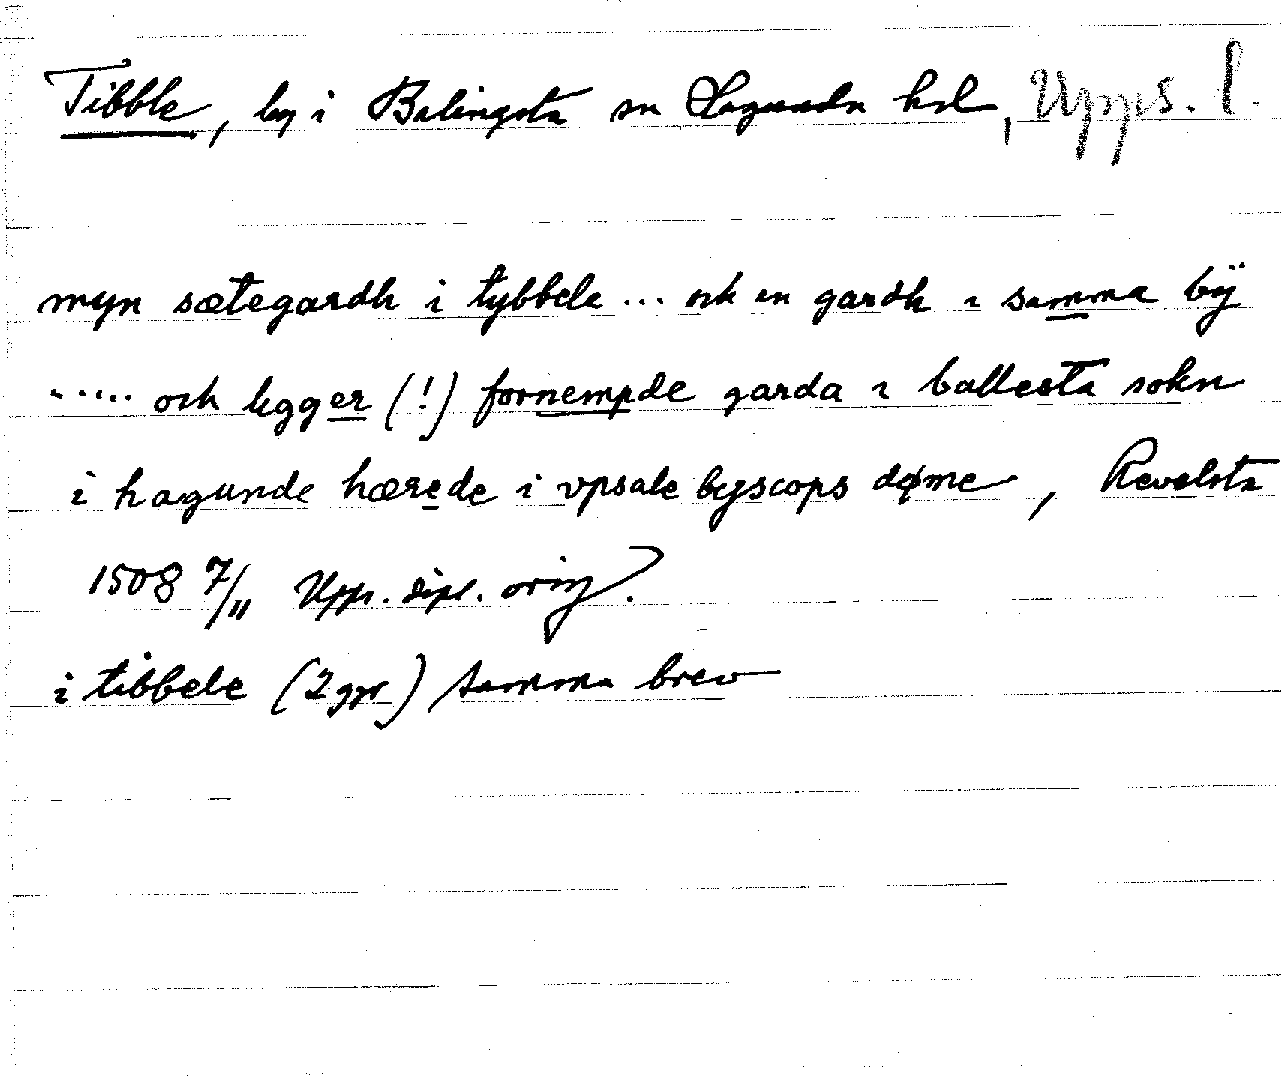 Tibble, by i Balingsta sn Lagunda hd, Upps. l.
myn sætegardh i tybbele ... ok en gardh i samma bÿ
..... och legger (!) fornempde garda i ballesta sokn
i hagunde hærede i vpsale byscops døme, Revelsta
1508 7/11 Upps. dipl. orig.
i tibbele (2 ggr) samma brev